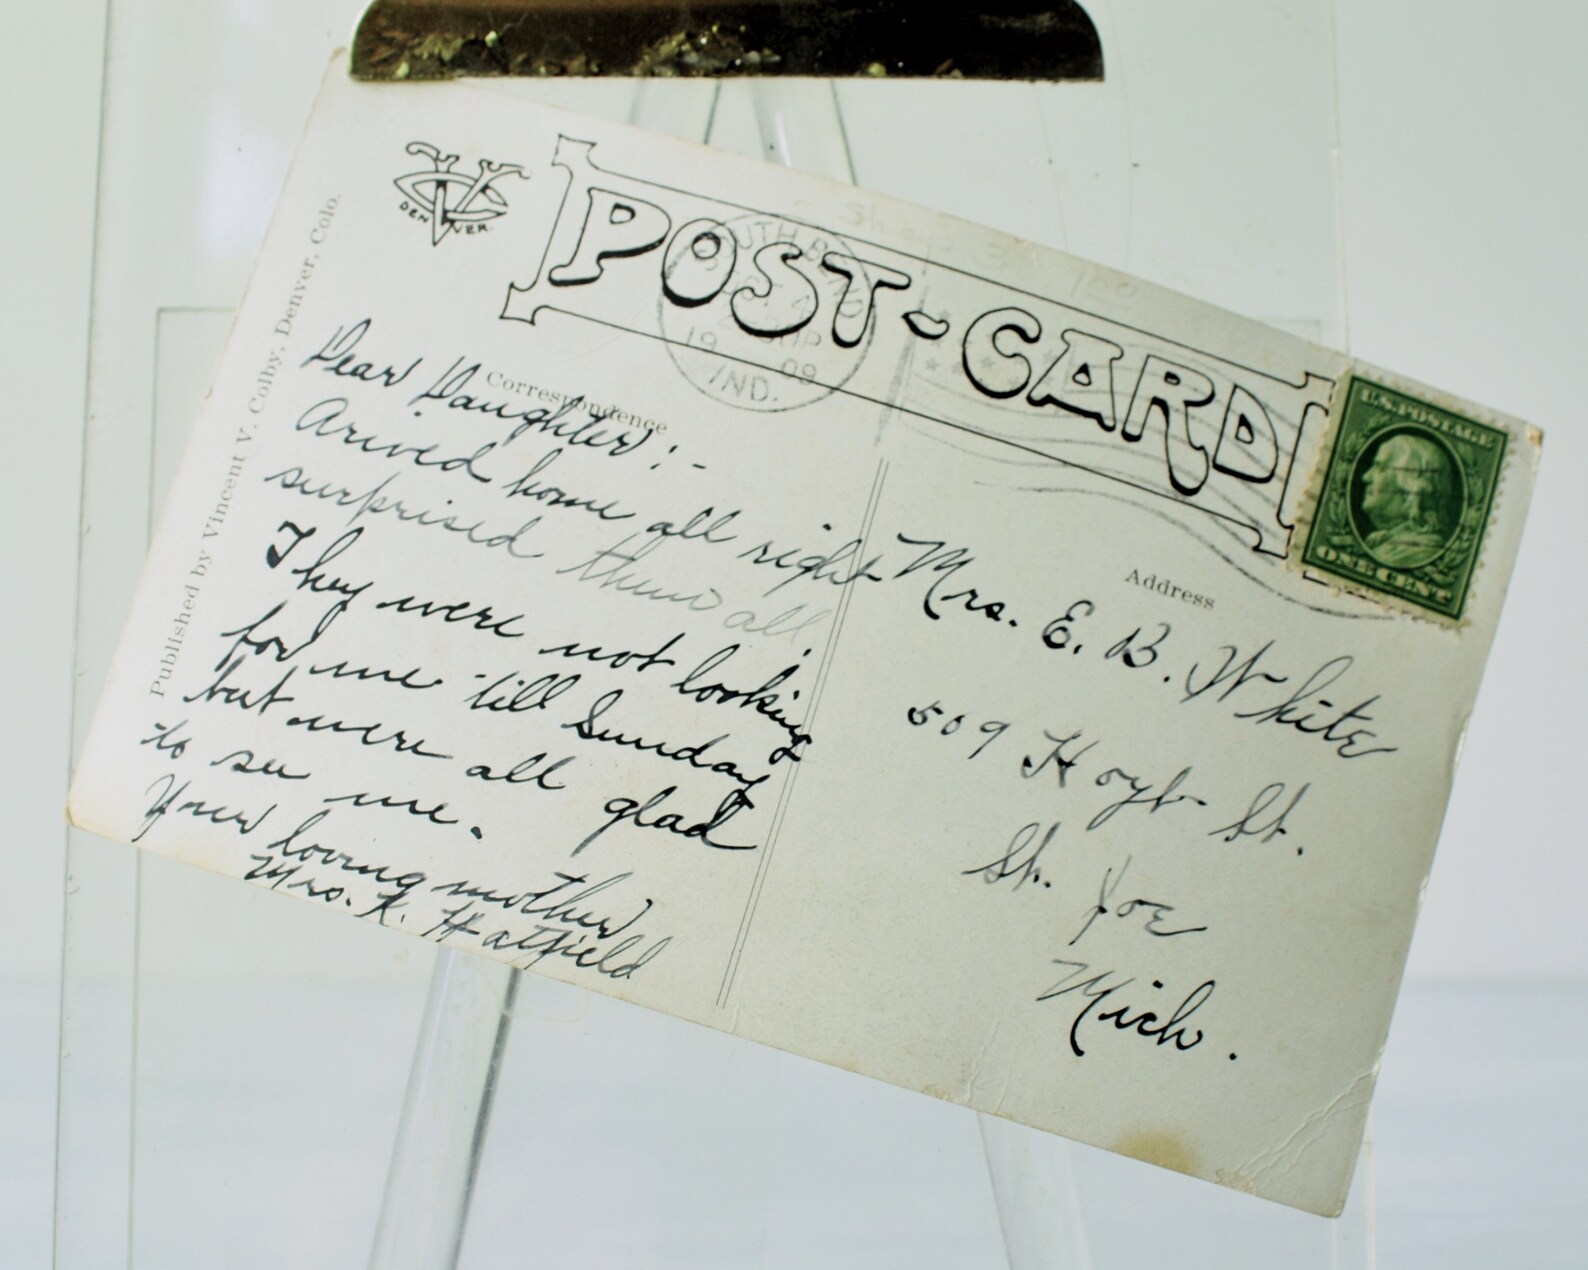 VVC
DENVER.
POST-CARD
SOUTH BEND
19 09
IND.
U.S. POSTAGE
ONE CENT
Published by Vincent V. Colby, Denver, Colo.
Correspondence
Dear Daughter:-
Arived home all right
surprised them all.
They were not looking
for me till Sunday
but were all glad
to see me.
Your loving mother
Mrs. K. Hatfield
Address
Mrs. E. B. White
509 Hoyt St.
St. Joe
Mich.